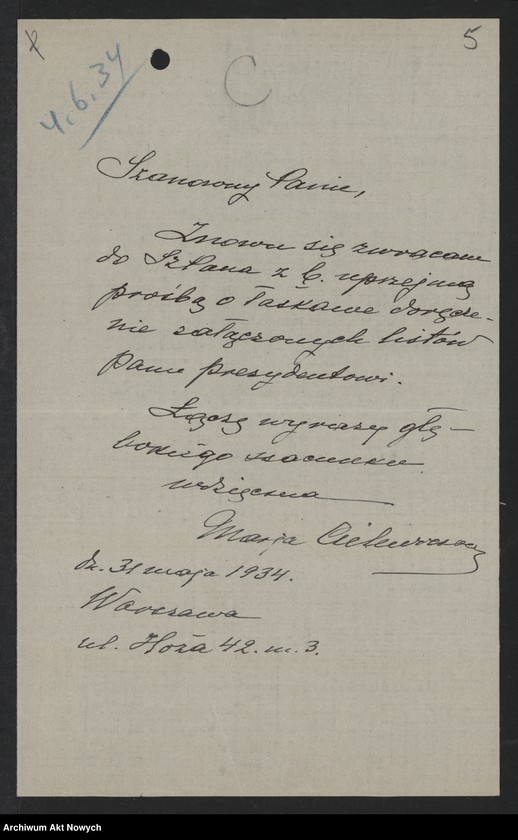 5
4.6.34
C
Szanowny Panie,
Znowu się zwracam
do Sz Pana z b. uprzejmą
prośbą o łaskawe doręcze-
nie załączonych listów
Panu prezydentowi.
Łączę wyrazy głę-
bokiego szacunku
wdzięczna
Marja
dn. 31 maja 1934.
Warszawa
ul. Hoża 42. m. 3.
Archiwum Akt Nowych